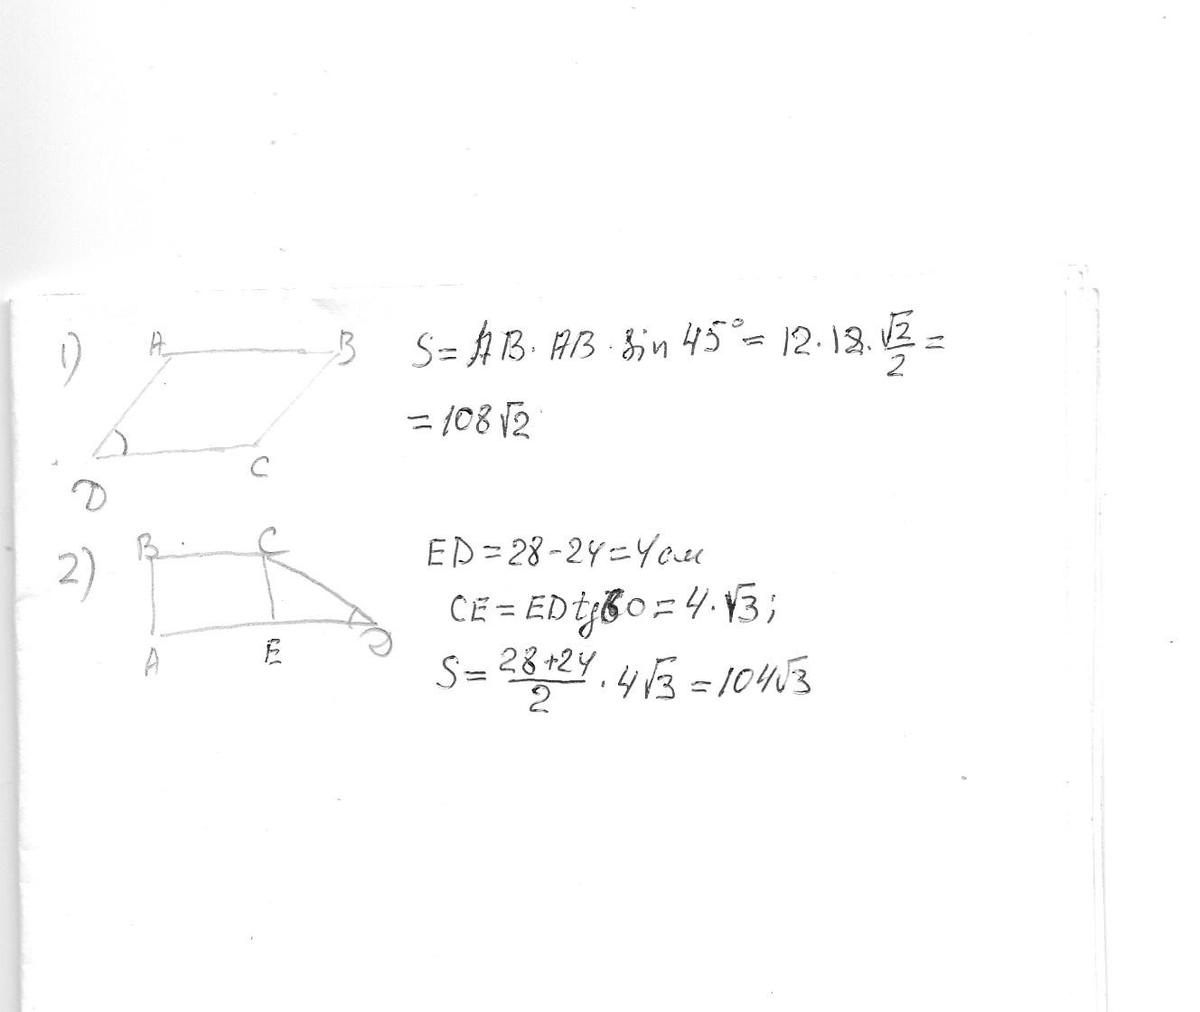 1) A B S = AB · AB · sin 45° = 12 · 18 · √2/2 =
= 108√2
D C
2) B C ED = 28 - 24 = 4 см
CE = ED tg 60 = 4 · √3;
A E D S = (28+24)/2 · 4√3 = 104√3